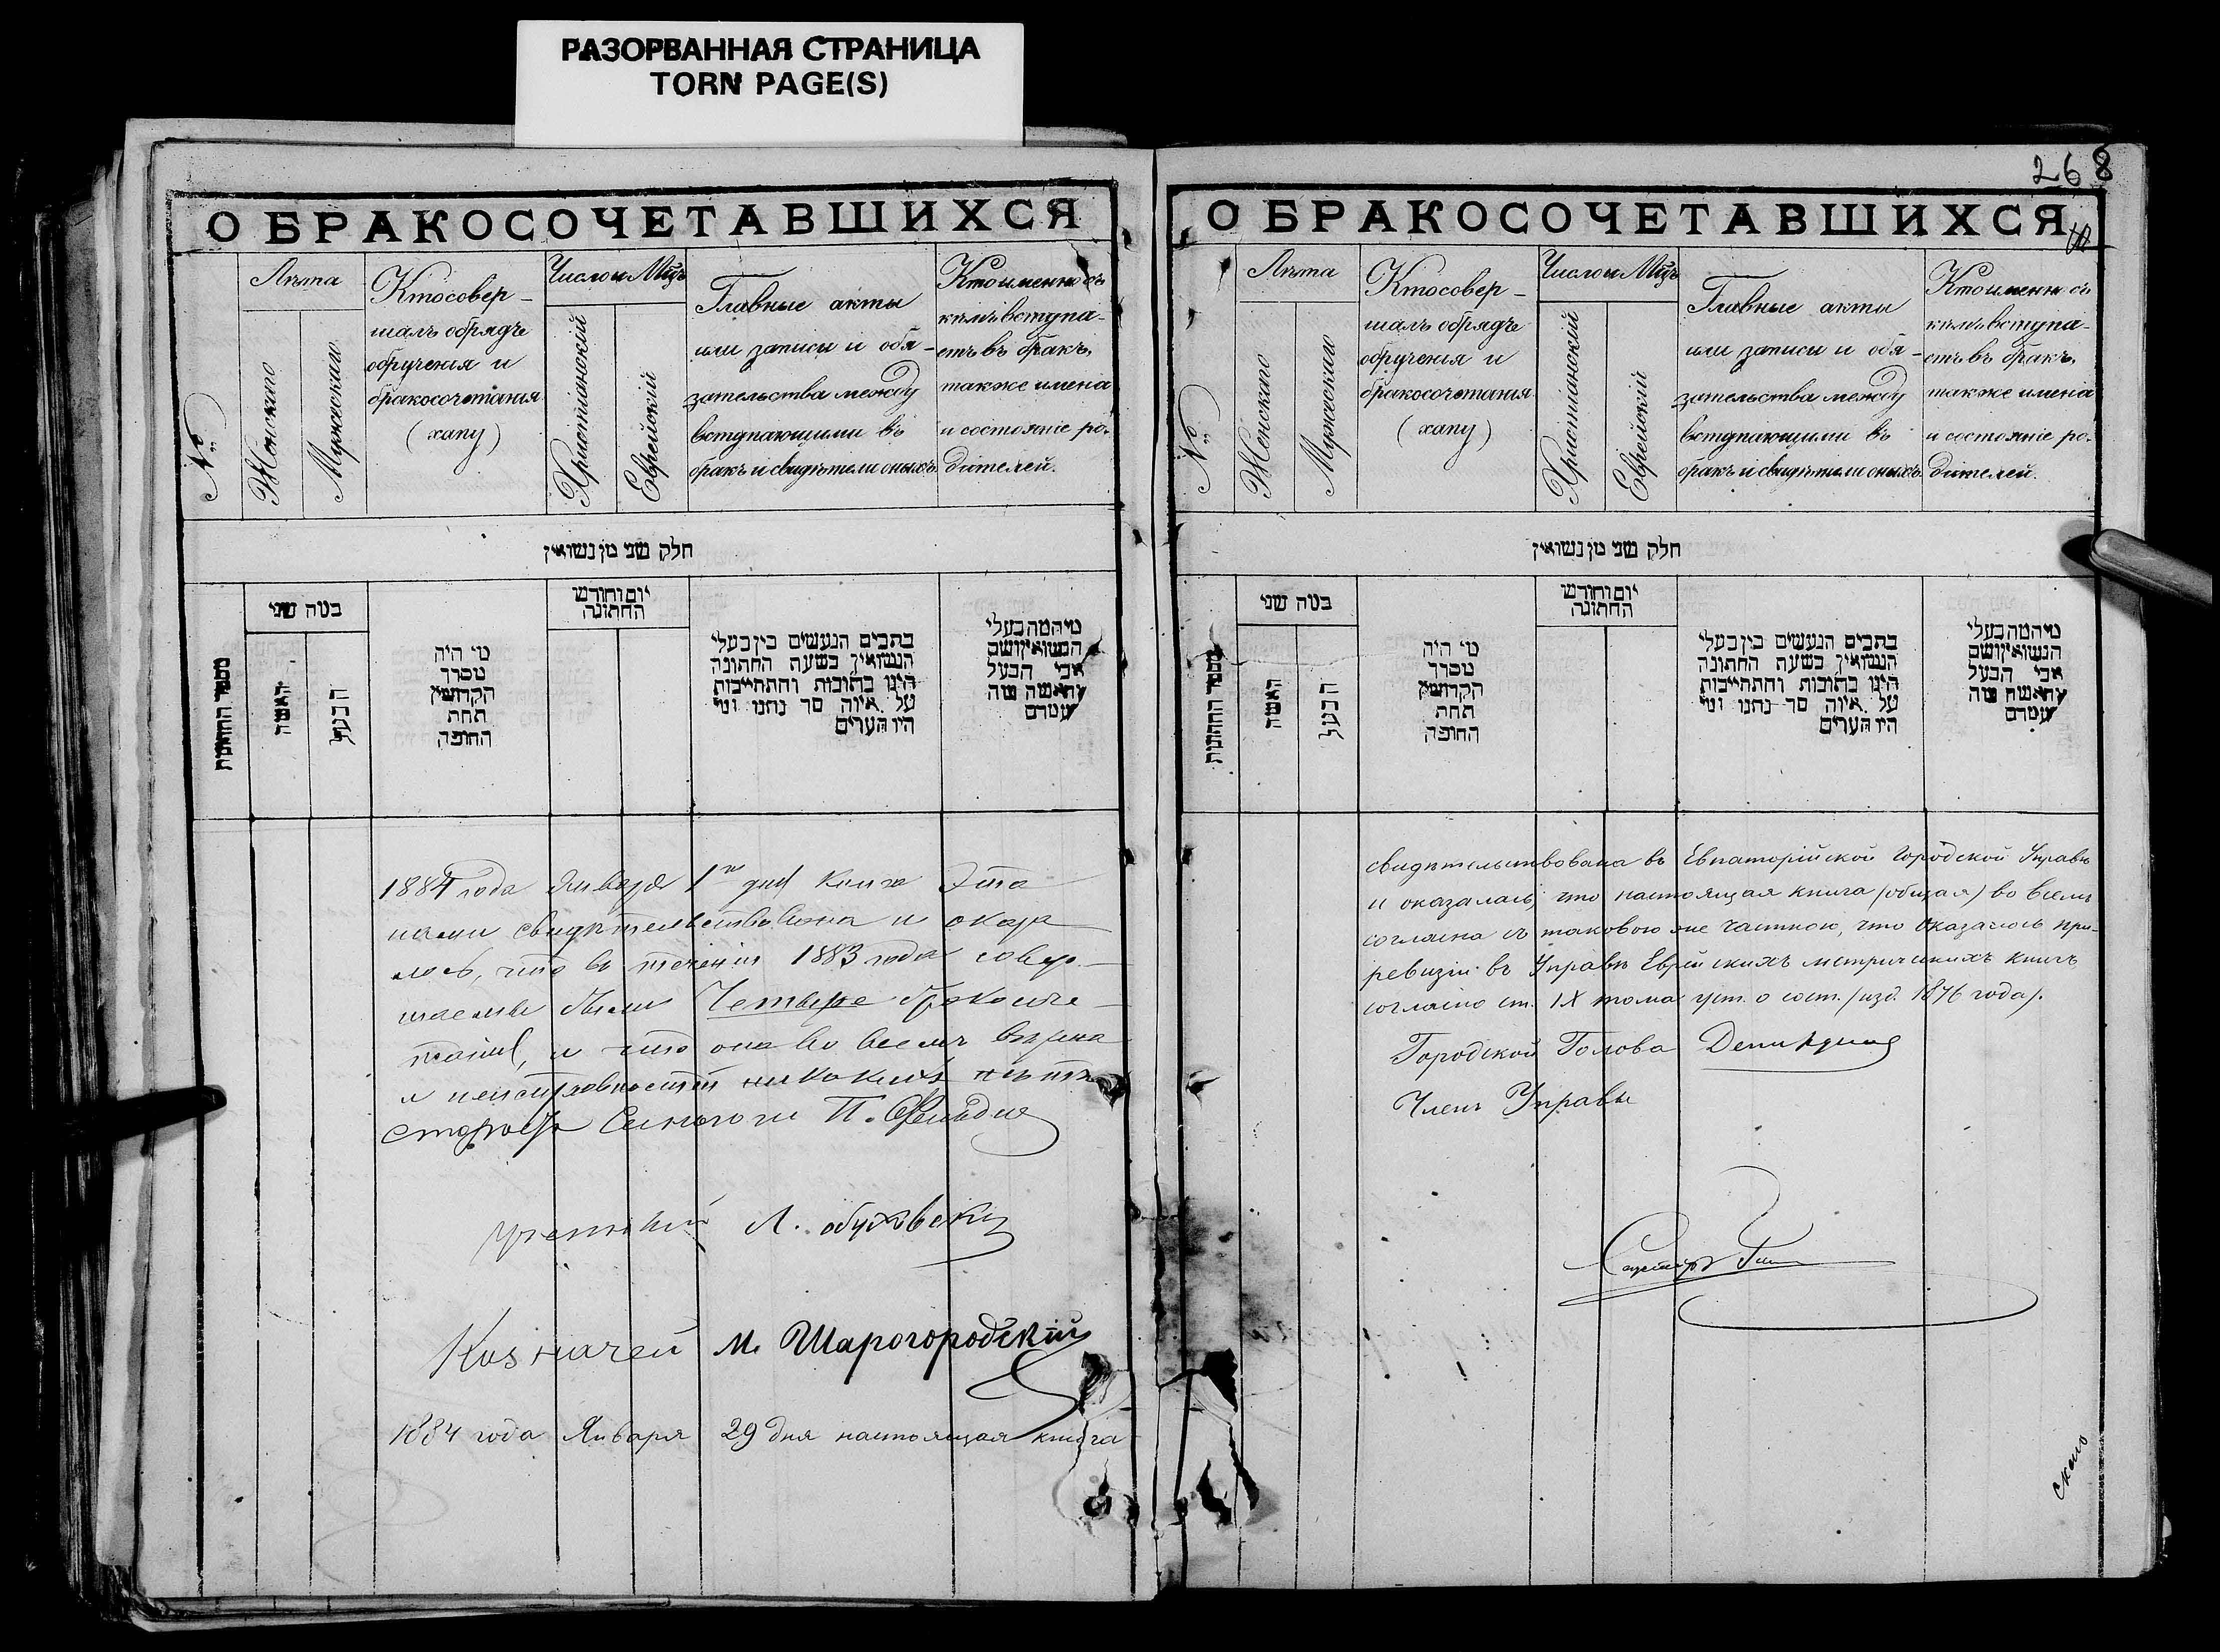 РАЗОРВАННАЯ СТРАНИЦА
TORN PAGE(S)
О БРАКОСОЧЕТАВШИХСЯ
№
Лѣта
Женскаго
Мужескаго
Кто совер-
шалъ обрядъ
обрученія и
бракосочетанія
(хапу)
Число и Мѣць
Христіанскій
Еврейскій
Главные акты
или записи и обя-
зательства между
вступающими въ
бракъ и свидѣтели оныхъ
Кто именно съ
кѣмъ вступа-
етъ въ бракъ,
также имена
и состояніе ро-
дителей.
חלק שני מן נשואין
מספר החתונות
כמה שני
האשה
הבעל
מי היה
מסדר
הקדושין
תחת
החופה
יום וחודש
החתונה
כתבים הנעשים בין בעלי
הנשואין בשעת החתונה
היינו כתובות והתחייבות
על איזה סך נתנו ומי
היו העדים
מי המה בעלי
הנשואין ושם
אבי הבעל
והאשה מה
מעמדם
1884 года Января 1го дня книга Эта
нами свидѣтельствована и оказа
лось, что въ теченіи 1883 года совер-
шаемы были Четыре бракосоче-
танія, и что она во всемъ вѣрна
и неисправностей никакихъ нѣтъ
Староста Синагоги П.
Ученный Л. Обуховски
Казначей М. Шарогородскій
1884 года Января 29 дня настоящая книга
268
О БРАКОСОЧЕТАВШИХСЯ
№
Лѣта
Женскаго
Мужескаго
Кто совер-
шалъ обрядъ
обрученія и
бракосочетанія
(хапу)
Число и Мѣць
Христіанскій
Еврейскій
Главные акты
или записи и обя-
зательства между
вступающими въ
бракъ и свидѣтели оныхъ
Кто именно съ
кѣмъ вступа-
етъ въ бракъ,
также имена
и состояніе ро-
дителей.
חלק שני מן נשואין
מספר החתונות
כמה שני
האשה
הבעל
מי היה
מסדר
הקדושין
תחת
החופה
יום וחודש
החתונה
כתבים הנעשים בין בעלי
הנשואין בשעת החתונה
היינו כתובות והתחייבות
על איזה סך נתנו ומי
היו העדים
מי המה בעלי
הנשואין ושם
אבי הבעל
והאשה מה
מעמדם
свидѣтельствована въ Евпаторійской Городской Управѣ
и оказалась, что настоящая книга (общая) во всемъ
согласна съ таковою же частною, что оказалось при
ревизіи въ Управѣ Еврейскихъ метрическихъ книгъ
согласно ст. IX тома уст. о сост. (изд. 1876 года).
Городской Голова
Членъ Управы